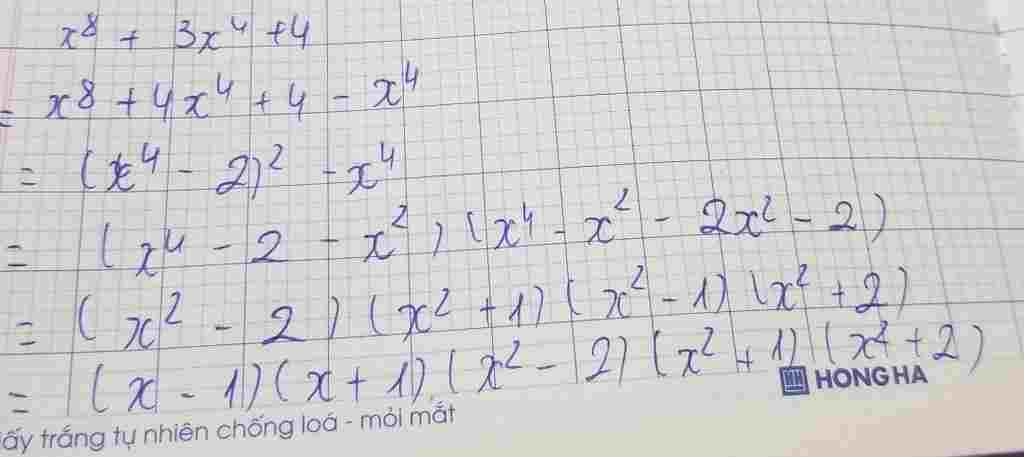 x⁸ + 3x⁴ + 4
= x⁸ + 4x⁴ + 4 - x⁴
= (x⁴ - 2)² - x⁴
= (x⁴ - 2 - x²)(x⁴ - x² - 2x² - 2)
= (x² - 2)(x² + 1)(x² - 1)(x² + 2)
= (x - 1)(x + 1)(x² - 2)(x² + 1)(x² + 2)
HONG HA
ấy trắng tự nhiên chống loá - mỏi mắt